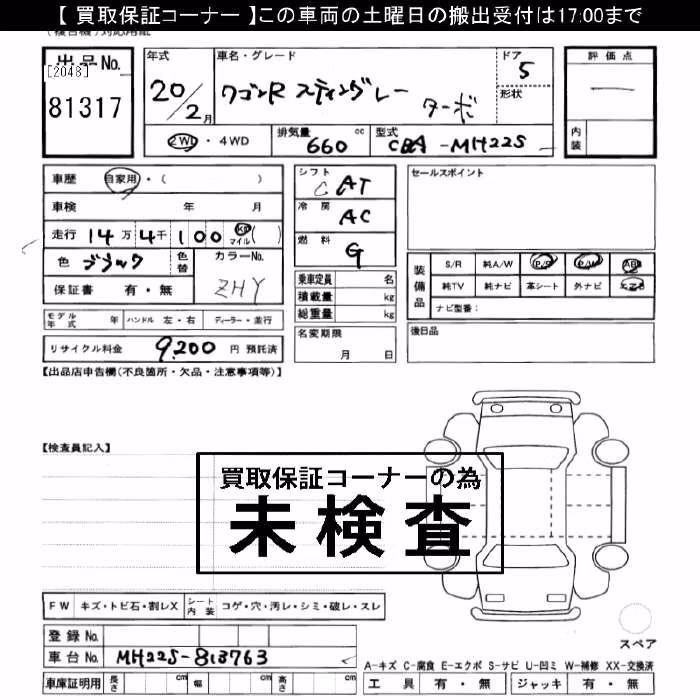 【 買取保証コーナー 】この車両の土曜日の搬出受付は17:00まで
出品No.
[2048]
81317
年式
20/2月
車名・グレード
ワゴンR スティングレー
ターボ
ドア
5
形状
評価点
内装
2WD・4WD
排気量
660
cc
型式
CBA-MH22S
車歴
自家用・( )
車検 年 月
走行 14万4千100
Km
マイル( )
色 ブラック
色替
カラーNo.
ZHY
保証書 有・無
モデル年式 年
ハンドル 左・右
ディーラー・並行
リサイクル料金 9,200 円 預託済
シフト
AT
冷房
AC
燃料
G
乗車定員 名
積載量 kg
総重量 kg
名変期限
月 日
セールスポイント
装備品
S/R 純A/W P/S P/W ABS
純TV 純ナビ 革シート 外ナビ エアB
ナビ型番:
後日品
【出品店申告欄(不良箇所・欠品・注意事項等)】
【検査員記入】
買取保証コーナーの為
未検査
FW キズ・トビ石・割レX
シート内装 コゲ・穴・汚レ・シミ・破レ・スレ
登録 No.
車台 No. MH22S-813763
車庫証明用 長さ cm 幅 cm 高さ cm
スペア
A-キズ C-腐食 E-エクボ S-サビ U-凹ミ W-補修 XX-交換済
工具 有・無
ジャッキ 有・無